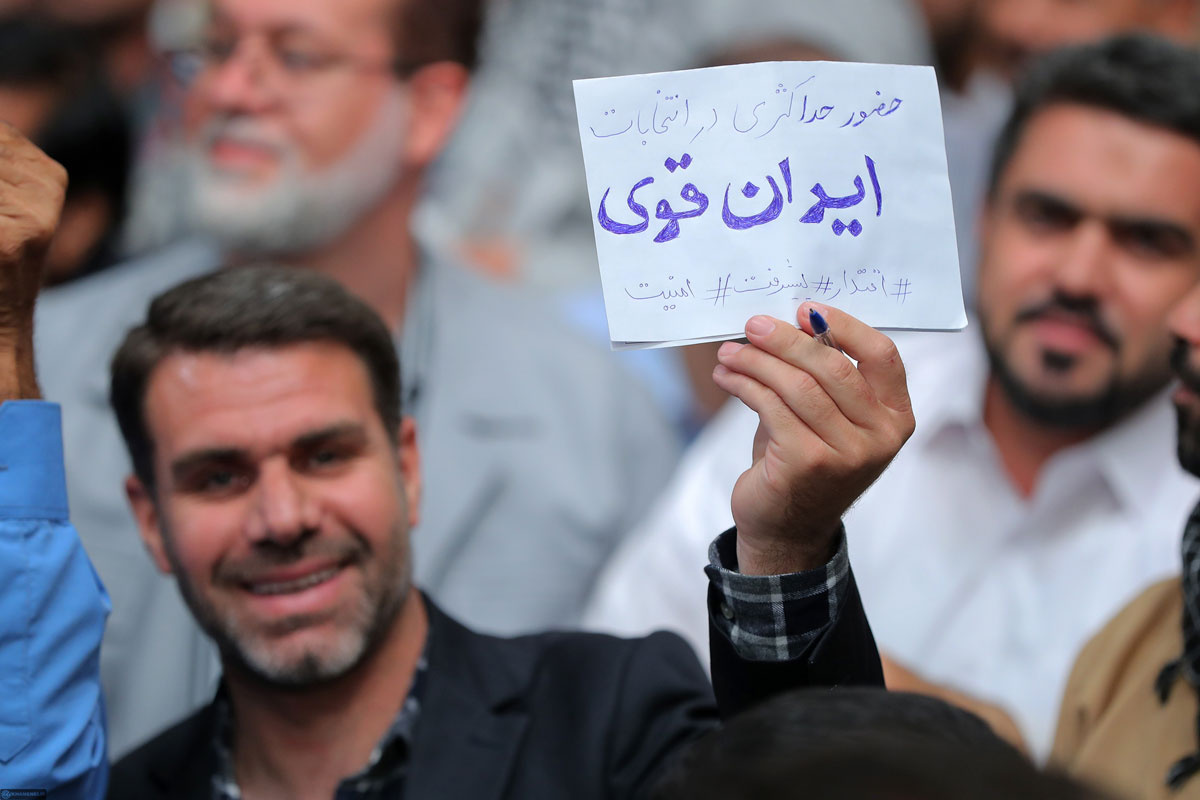 حضور حداکثری در انتخابات
ایران قوی
#اقتدار #پیشرفت #امنیت